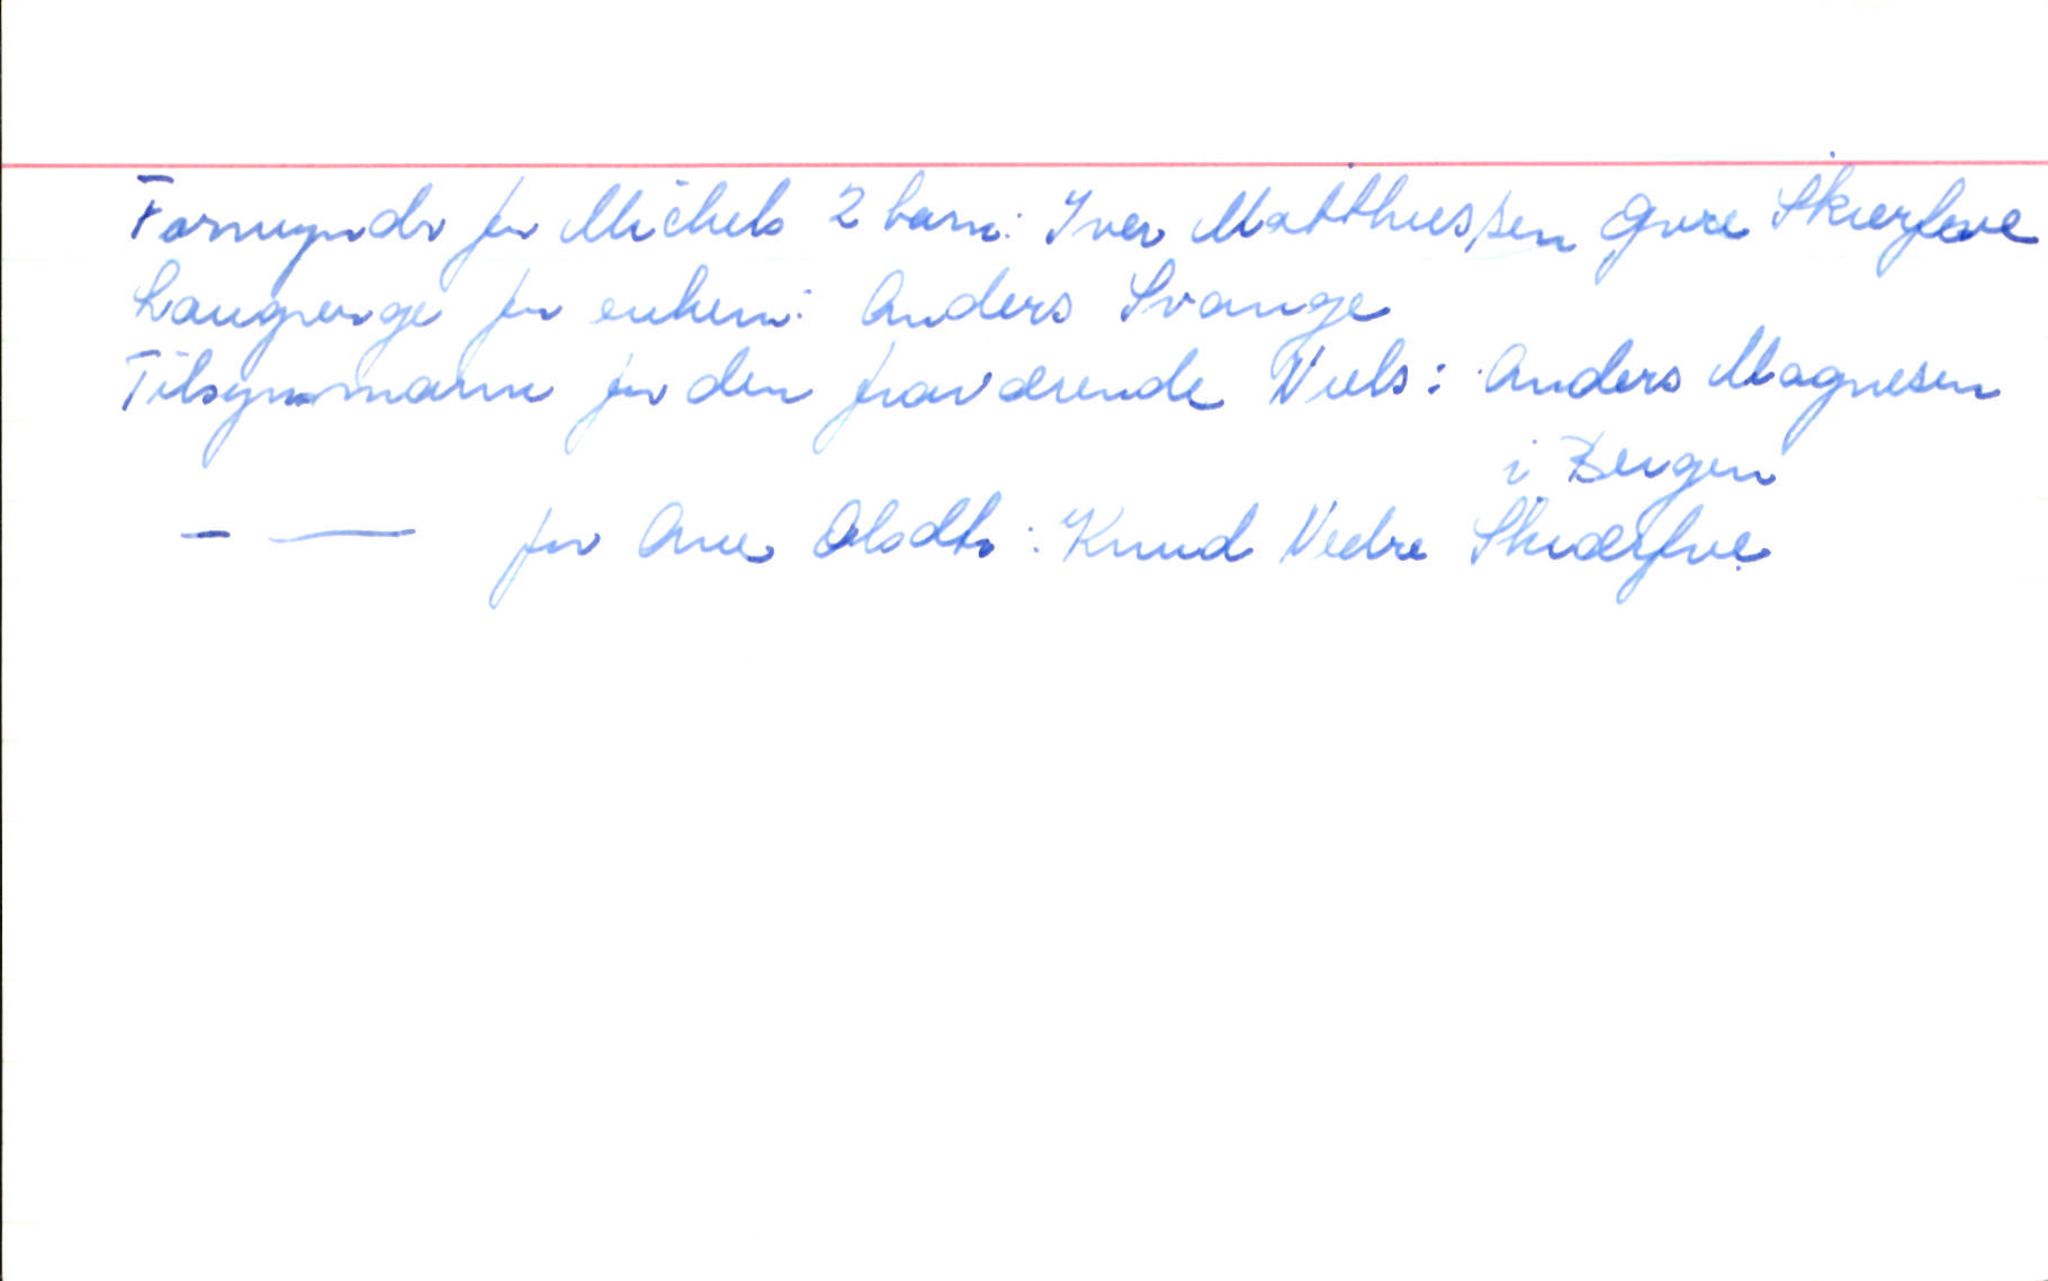 Formyndr for Michels 2 barn: Iver Matthiessen Øvre Skierfve
Laugverge for enken: Anders Svange
Tilsynsmann for den fraværende Niels: Anders Magnesen
i Bergen
— —— for Ane Olsdtr: Knud Nedre Skiærfve